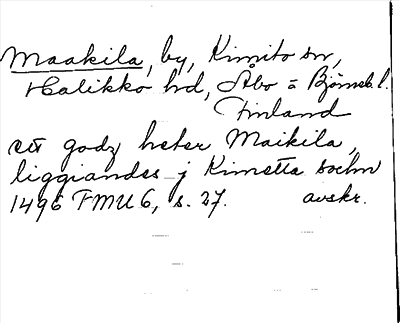 Maakila, by, Kimito sn,
Halikko hd, Åbo = Björneb. l.
Finland
ett godz heter Maikila,
liggiandes j Kimetta sochn
1496 FMU 6, s. 27. avskr.